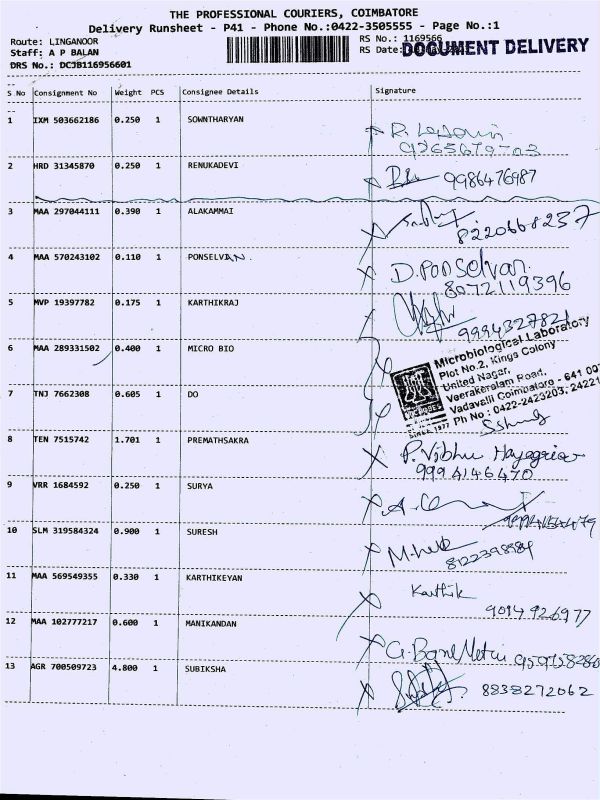 THE PROFESSIONAL COURIERS, COIMBATORE
Delivery Runsheet - P41 - Phone No.:0422-3505555 - Page No.:1
Route: LINGANOOR
Staff: A P BALAN
DRS No.: DCJB116956601
RS No.: 1169566
RS Date:
DOCUMENT DELIVERY
S No Consignment No Weight PCS Consignee Details Signature
1 IXM 503662186 0.250 1 SOWNTHARYAN
9265679703
2 HRD 31345870 0.250 1 RENUKADEVI 9986476987
3 MAA 297044111 0.390 1 ALAKAMMAI
8220668237
4 MAA 570243102 0.110 1 PONSELVAN. D. Ponselvan.
8072119396
5 MVP 19397782 0.175 1 KARTHIKRAJ
9994327821
6 MAA 289331502 0.400 1 MICRO BIO
Microbiological Laboratory
Plot No.2, Kings Colony
United Nagar,
Veerakeralam Road,
Vadavalli Coimbatore - 641 007
Ph No : 0422-2423203, 24221
SINCE 1977
7 TNJ 7662308 0.605 1 DO
8 TEN 7515742 1.701 1 PREMATHSAKRA P. Vibhu
9994146470
9 VRR 1684592 0.250 1 SURYA
10 SLM 319584324 0.900 1 SURESH
8122398984
11 MAA 569549355 0.330 1 KARTHIKEYAN Karthik
9014926977
12 MAA 102777217 0.600 1 MANIKANDAN
13 AGR 700509723 4.800 1 SUBIKSHA 8838272062